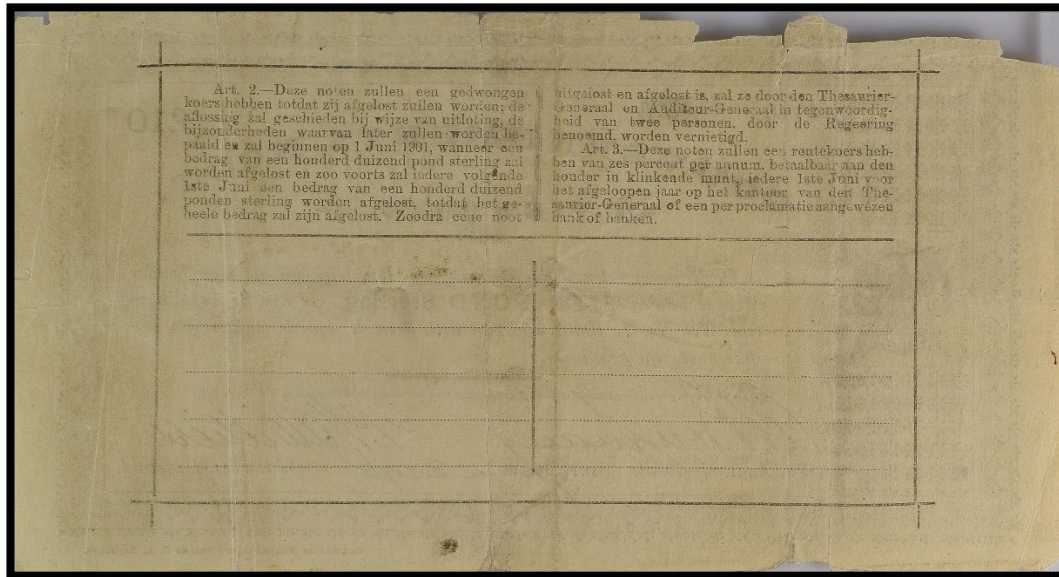 Art. 2.—Deze noten zullen een gedwongen
koers hebben totdat zij afgelost zullen worden; de
aflossing zal geschieden bij wijze van uitloting, de
bijzonderheden waarvan later zullen worden be-
paald en zal beginnen op 1 Juni 1901, wanneer een
bedrag van een honderd duizend pond sterling zal
worden afgelost en zoo voorts zal iedere volgende
1ste Juni een bedrag van een honderd duizend
ponden sterling worden afgelost, totdat het ge-
heele bedrag zal zijn afgelost. Zoodra eene noot
uitgelost en afgelost is, zal ze door den Thesaurier-
Generaal en Auditeur-Generaal in tegenwoordig-
heid van twee personen, door de Regeering
benoemd, worden vernietigd.
Art. 3.—Deze noten zullen een rentekoers heb-
ben van zes percent per annum, betaalbaar aan den
houder in klinkende munt, iedere 1ste Juni voor
het afgeloopen jaar op het kantoor van den The-
saurier-Generaal of een per proclamatie aangewezen
bank of banken.